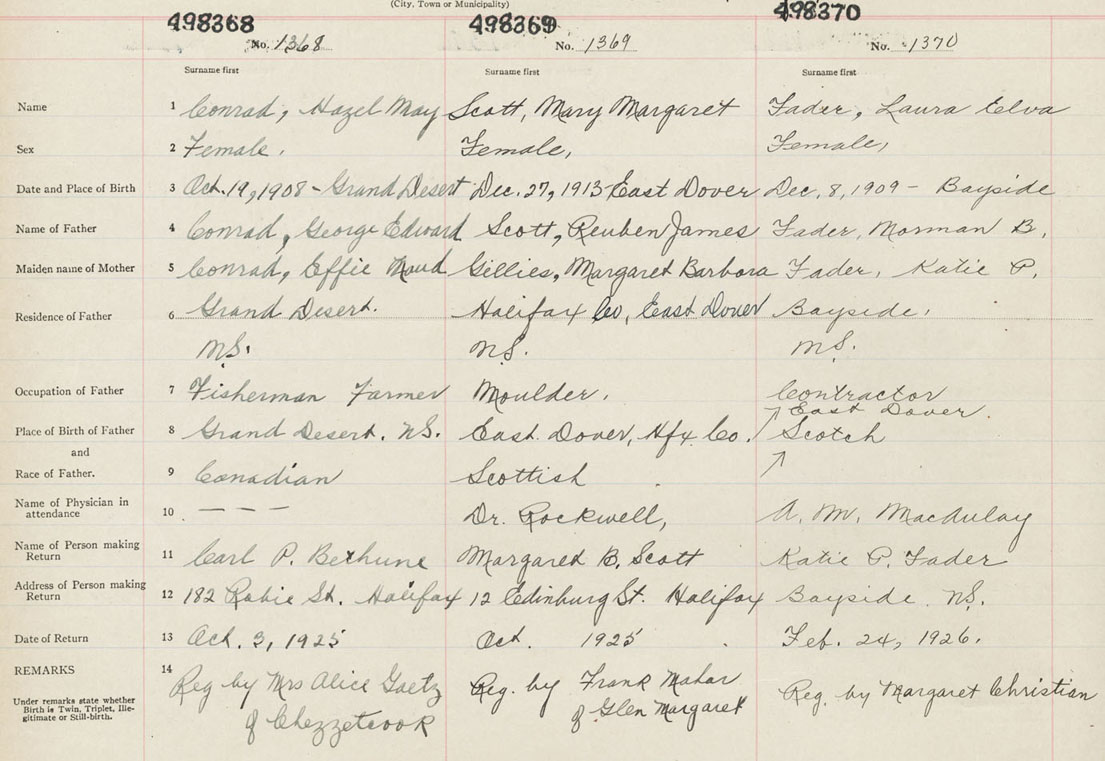 (City, Town or Municipality)
498368 498369 498370
No. 1368 No. 1369 No. 1370
Surname first Surname first Surname first
Name 1 Conrad, Hazel May Scott, Mary Margaret Fader, Laura Elva
Sex 2 Female. Female, Female,
Date and Place of Birth 3 Oct. 19, 1908 - Grand Desert Dec. 27, 1913 East Dover Dec. 8, 1909 - Bayside
Name of Father 4 Conrad, George Edward Scott, Reuben James Fader, Norman B.
Maiden name of Mother 5 Conrad, Effie Maud Gillies, Margaret Barbora Fader, Katie P.
Residence of Father 6 Grand Desert. Halifax Co, East Dover Bayside.
N.S. N.S. N.S.
Occupation of Father 7 Fisherman Farmer Moulder. Contractor
East Dover.
Place of Birth of Father 8 Grand Desert. N.S. East. Dover, Hfx Co. Scotch
and
Race of Father. 9 Canadian Scottish
Name of Physician in
attendance 10 — — — Dr. Rockwell, A. M. MacAulay
Name of Person making
Return 11 Carl P. Bethune Margaret B. Scott Katie P. Fader
Address of Person making
Return 12 182 Robie St. Halifax 12 Edinburg St. Halifax Bayside N.S.
Date of Return 13 Oct. 3, 1925 Oct. 1925 Feb. 24, 1926.
REMARKS 14 Reg by Mrs Alice Gaetz Reg. by Frank Mahar Reg. by Margaret Christian
of Chezzetcook of Glen Margaret
Under remarks state whether
Birth is Twin, Triplet, Ille-
gitimate or Still-birth.